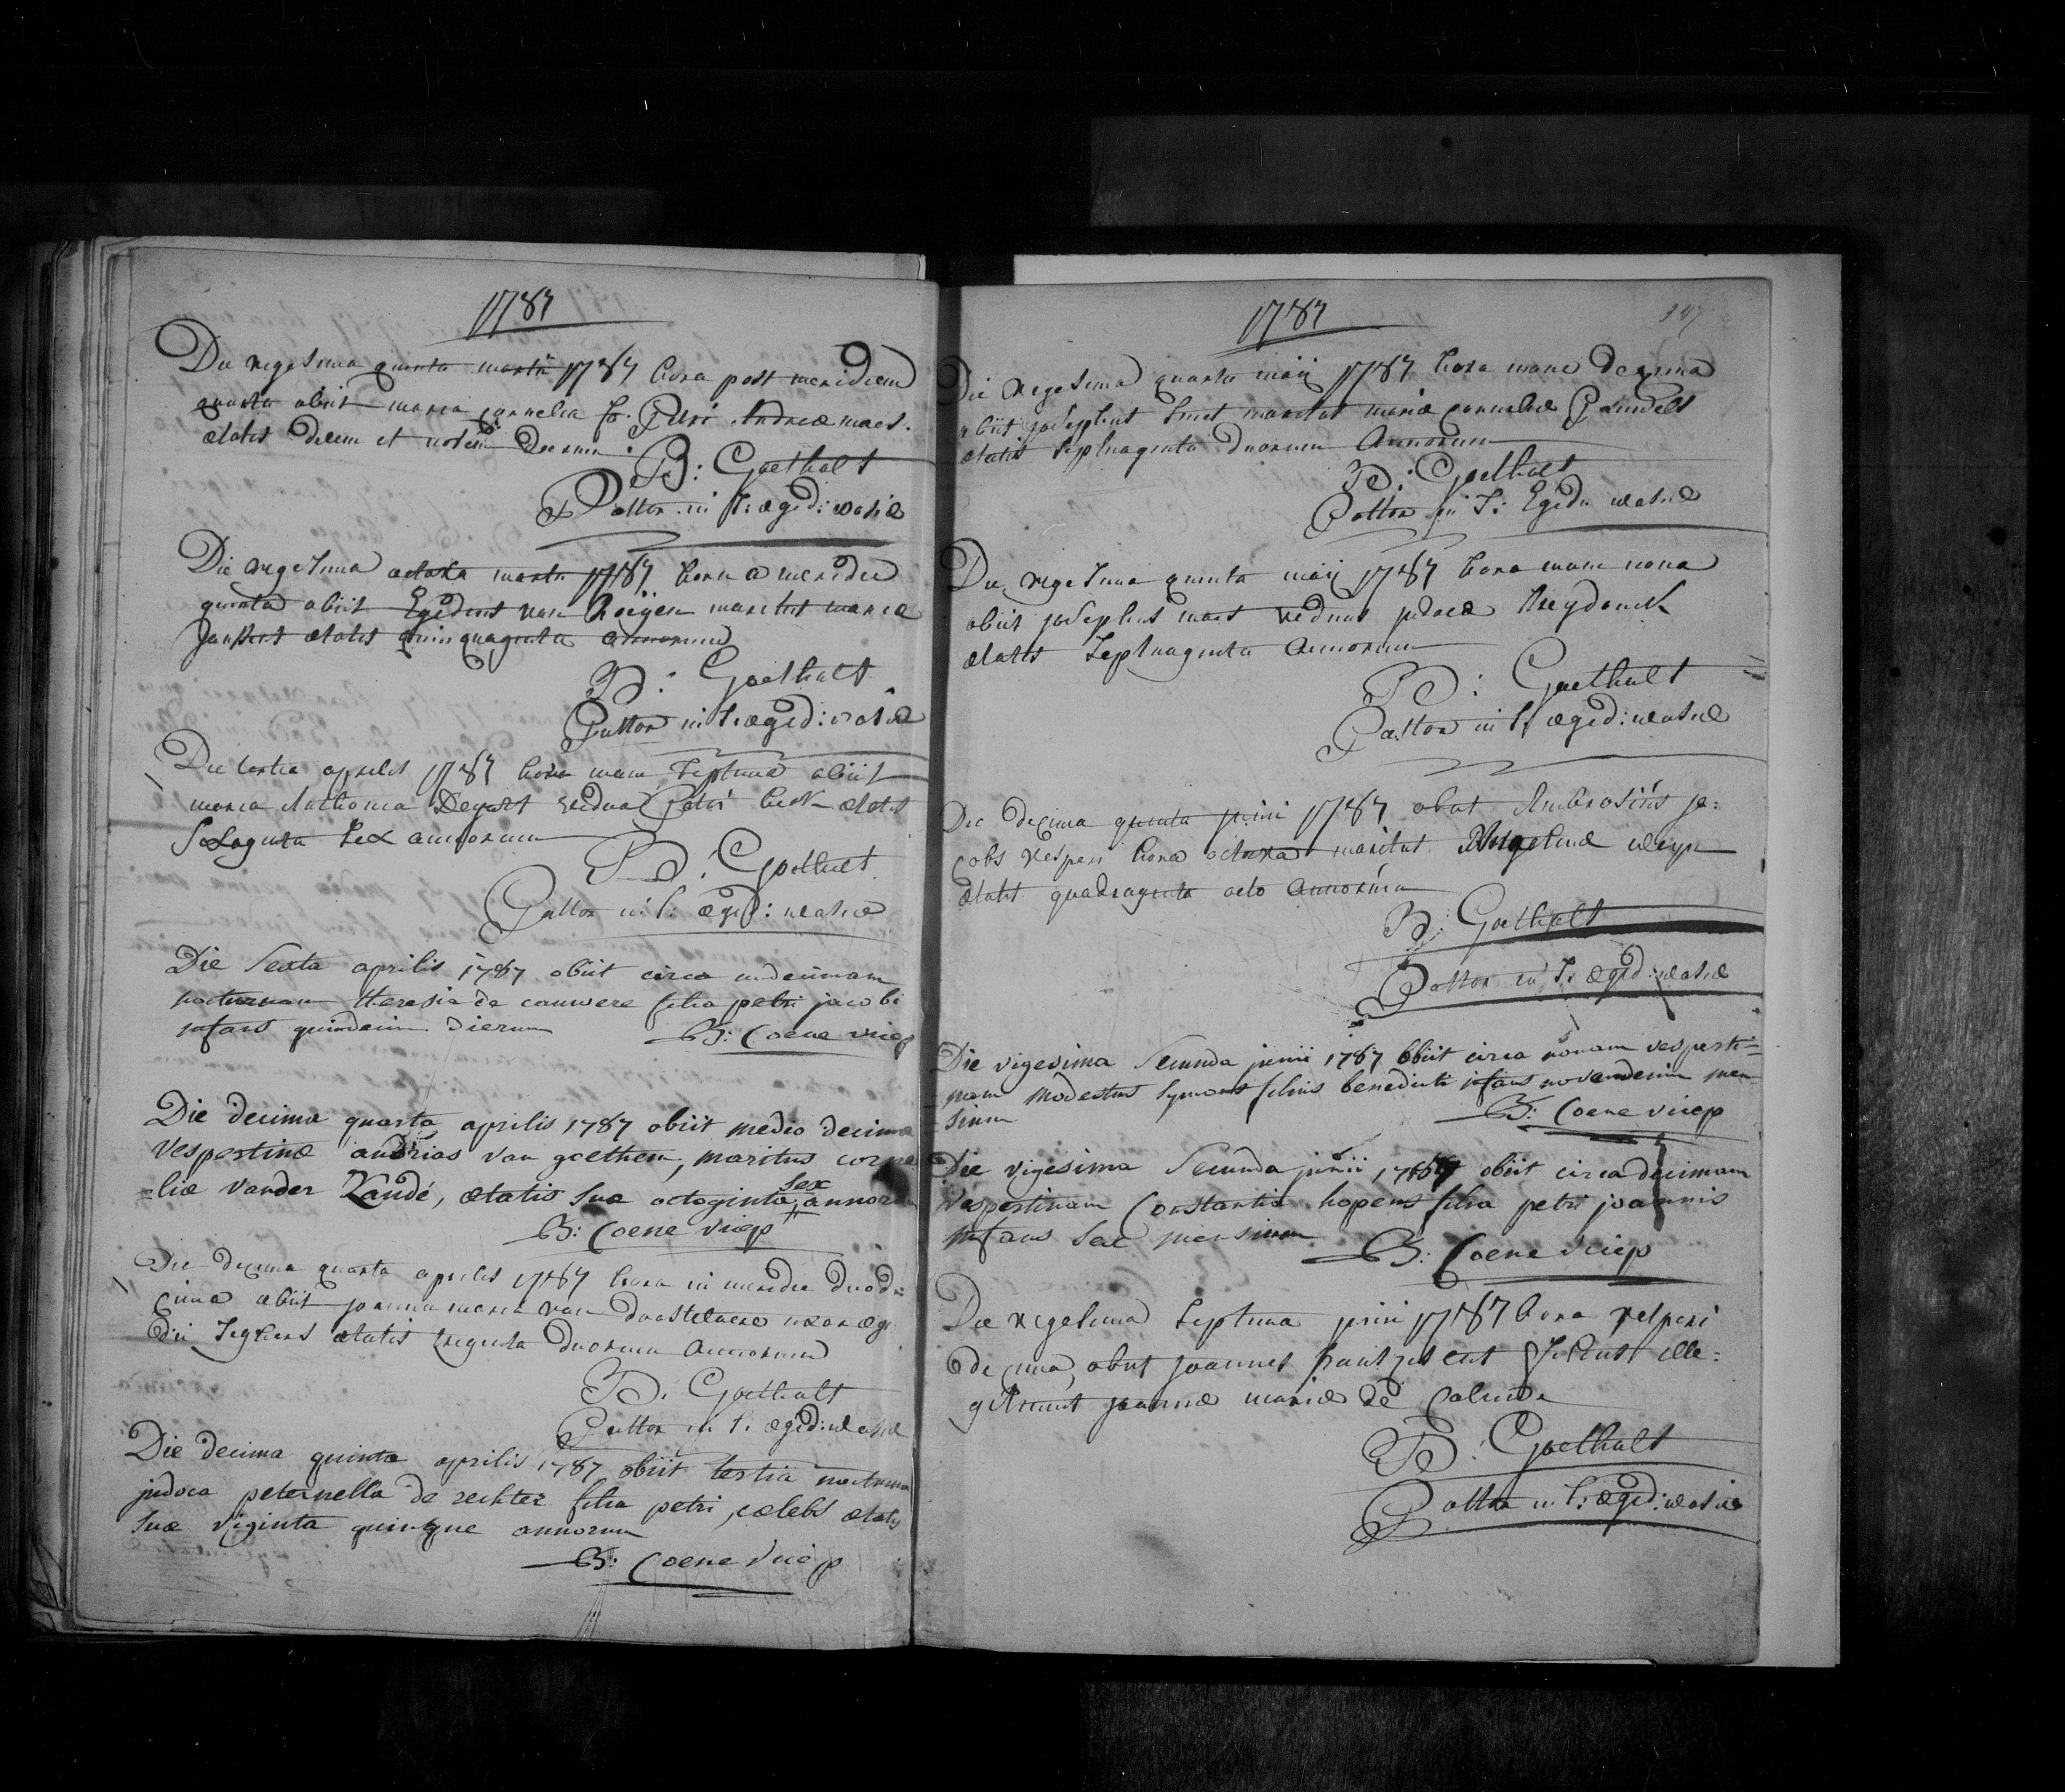 1787
Die vigesima quinta martii 1787 hora post meridiem
quarta obiit maria cornelia f. Petri Andreæ maes.
ætatis decem et novem dierum
B: Goethals
Pastor in S: ægid: wasiæ
Die vigesima octava martii 1787 hora a meridie
quinta obiit Egidius van Roijen maritus mariæ
ætatis quinquaginta annorum
B: Goethals
Pastor in S: ægid: wasiæ
Die tertia aprilis 1787 hora mane septima obiit
maria Anthonia vidua Petri ætatis
sexaginta sex annorum
B: Goethals
Pastor in S: ægid: wasiæ
Die sexta aprilis 1787 obiit circa undecimam
nocturnam theresia de cauwere filia petri jacobi
infans quindecim dierum B: Coene vicep
Die decima quarta aprilis 1787 obiit medio decimæ
vespertinæ andrias van goethem, maritus corne
=liæ vander Zandé, ætatis suæ octoginta sex annorum
B: Coene vicep
Die decima quarta aprilis 1787 hora in meridie duode
cima obiit joanna maria van uxor ægi
dii Segers ætatis triginta duorum annorum
B: Goethals
Pastor in S: ægid: wasiæ
Die decima quinta aprilis 1787 obiit tertia nocturna
judoca peternella de rechter filia petri, cælebs ætatis
suæ viginta quinque annorum
B: Coene vicep
1787
147
Die vigesima quarta maij 1787 hora mane decima
obiit josephus smet maritus mariæ corneliæ
ætatis septuaginta duorum annorum
B: Goethals
Pastor in S: Egidii wasiæ
Die vigesima quinta maij 1787 hora mane nona
obiit josephus maes viduus judocæ Reydonck
ætatis septuaginta annorum
B: Goethals
Pastor in S: ægid: wasiæ
Die decima quinta junii 1787 obiit Ambrosius ja:
cobs vesperi hora octava maritus Angelinæ weyn
ætatis quadraginta octo annorum
B: Goethals
Pastor in S: ægid: wasiæ
Die vigesima secunda junii 1787 obiit circa nonam vesperti=
nam modestus symons filius benedicti infans novendecim men
sium B: Coene vicep
Die vigesima secunda junii 1787 obiit circa decimam
vespertinam Constantia hopens filia petri joannis
infans sex mensium B: Coene vicep
Die vigesima septima junii 1787 hora vesperi
decima, obiit joannes filius ille:
gitimus joannæ mariæ de
B: Goethals
Pastor in S: ægid: wasiæ